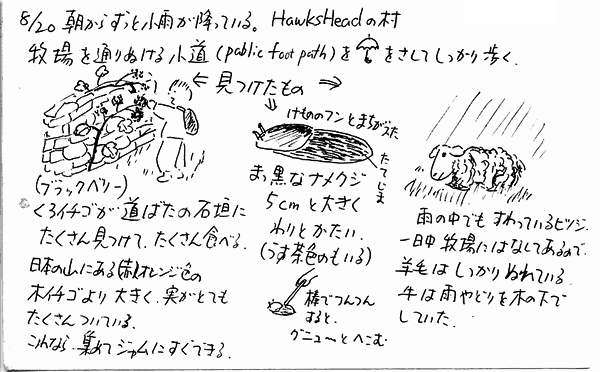 8/20 朝からずっと小雨が降っている。HawksHeadの村
牧場を通りぬける小道(public foot path)を をさしてしっかり歩く.
← 見つけたもの →
↓
(ブラックベリー)
くろイチゴが道ばたの石垣に
たくさん見つけて、たくさん食べる.
日本の山にある赤オレンジ色の
木イチゴより大きく、実がとても
たくさんついている.
これなら、集めてジャムにすぐできる.
けもののフンとまちがえた
たてじま
まっ黒なナメクジ
5cmと大きく
わりとかたい.
(うす茶色のもいる)
棒でつんつん
すると、
グニューとへこむ
雨の中でもすわっているヒツジ.
一日中牧場にはなしてあるので、
羊毛はしっかりぬれている.
牛は雨やどりを木の下で
していた.